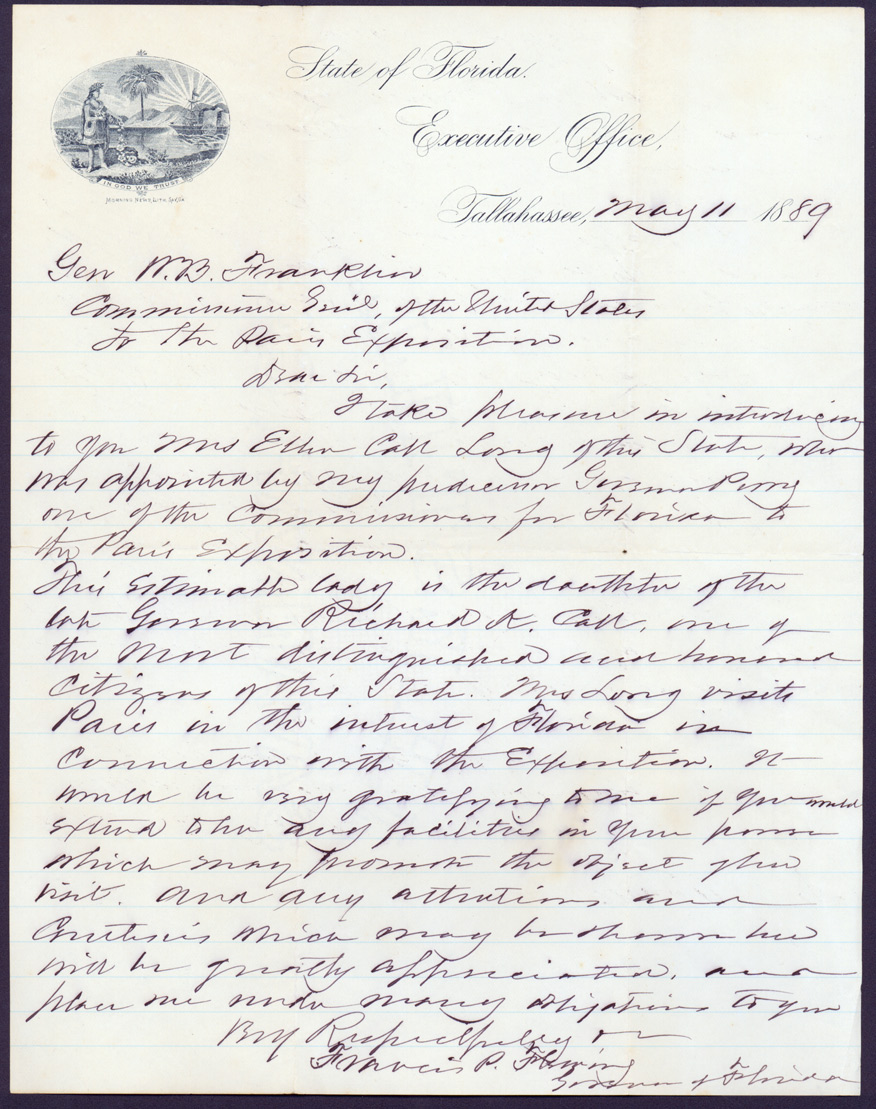 State of Florida.
Executive Office,
Tallahassee, May 11 1889
IN GOD WE TRUST
MORNING NEWS LITH. SAV. GA.
Gen W. B. Franklin
Commissioner Genl, of the United States
to the Paris Exposition.
Dear Sir,
I take pleasure in introducing
to you Mrs Ellen Call Long of this State, who
was appointed by my predecessor Governor Perry
one of the Commissioners for Florida to
the Paris Exposition.
This estimable lady is the daughter of the
late Governor Richard K. Call, one of
the most distinguished and honored
Citizens of this State. Mrs Long visits
Paris in the interest of Florida in
connection with the Exposition. It
would be very gratifying to me if you would
extend to her any facilities in your power
which may promote the object of her
visit. And any attentions and
Courtesies which may be shown her
will be greatly appreciated, and
place me under many obligations to you
Very Respectfully
Francis P. Fleming
Governor of Florida